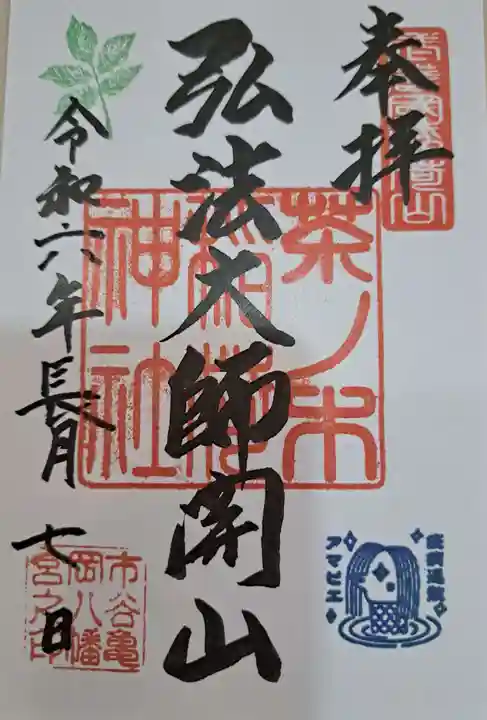 奉拝
弘法大師開山
茶ノ木
稲荷
神社
令和六年長月七日
市谷亀
岡八幡
宮之印
疫病退散
アマビエ